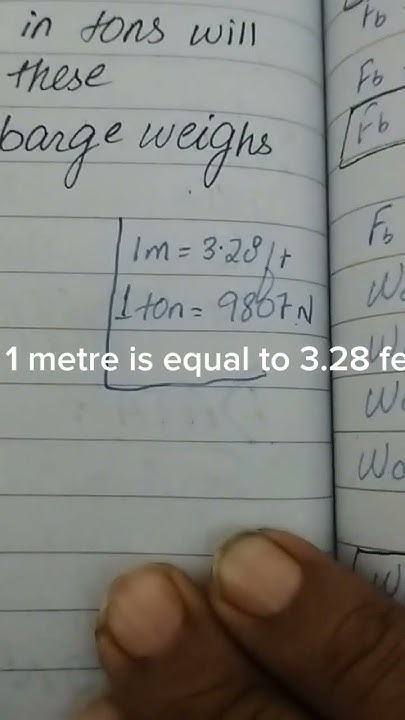 in tons will
these
barge weighs
1m = 3.28ft
1 ton = 9867N
1 metre is equal to 3.28 fe
Fb
Fb
Fb
Fb